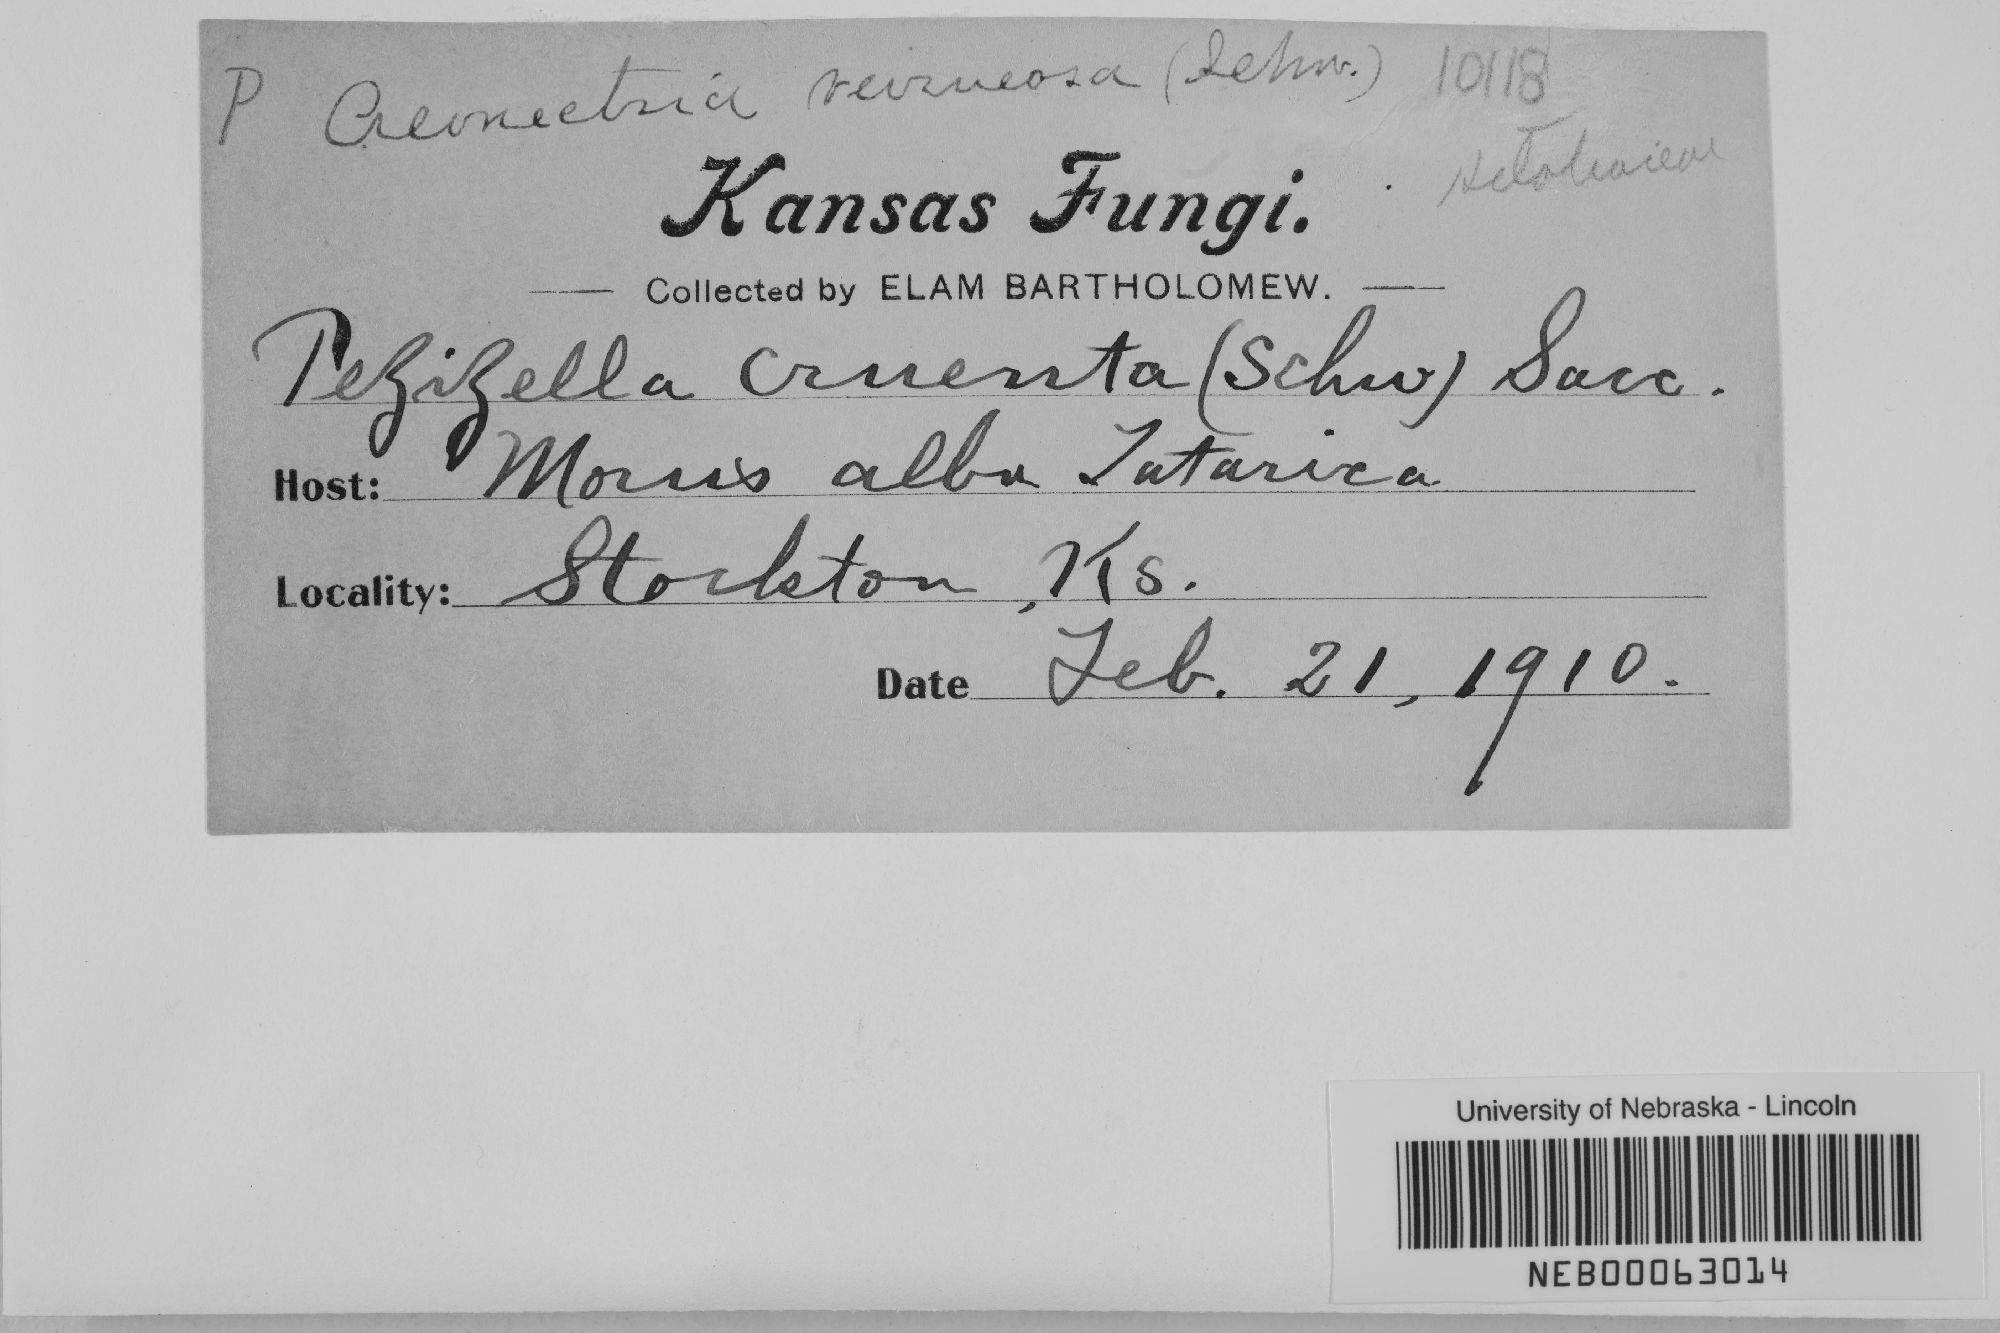 P Creonectria verrucosa (Schw.) 10118
Kansas Fungi.
Collected by ELAM BARTHOLOMEW.
Pezizella cruenta (Schw) Sacc.
Host: Morus alba Tatarica
Locality: Stockton, Ks.
Date Feb. 21, 1910.
University of Nebraska - Lincoln
NEB00063014